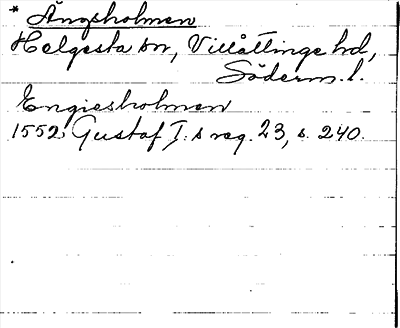 * Ängsholmen
Helgesta sn, Villåttinge hd,
Söderm. l.
Engiesholmen
1552. Gustaf I:s reg. 23, s. 240.